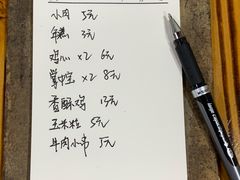 小肉 5元
年糕 3元
鸡心×2 6元
掌中宝×2 8元
香酥鸡 13元
玉米粒 5元
牛肉小串 5元